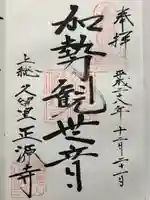 奉拝
平成二八年十二月二十一日
加勢観世音
上総
久留里
正源寺